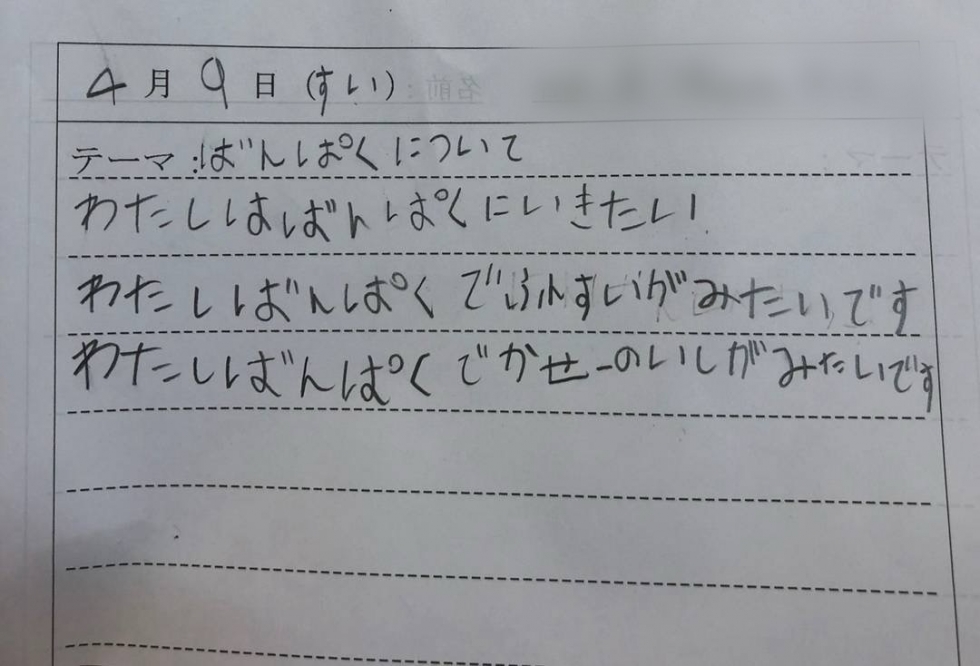 4月9日(すい)
テーマ:ばんぱくについて
わたしはばんぱくにいきたい
わたしばんぱくでふんすいがみたいです
わたしばんぱくでかせーのいしがみたいです